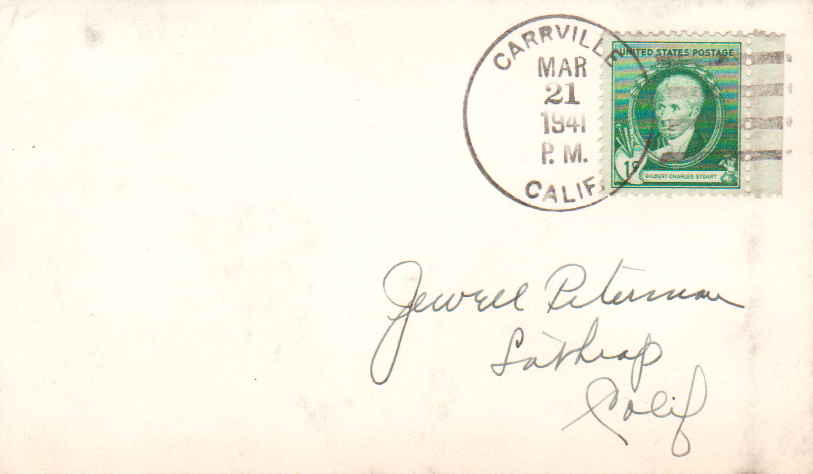 CARRVILLE
MAR
21
1941
P. M.
CALIF.
UNITED STATES POSTAGE
1¢
GILBERT CHARLES STUART
Jewell Peterman
Lathrop
Calif